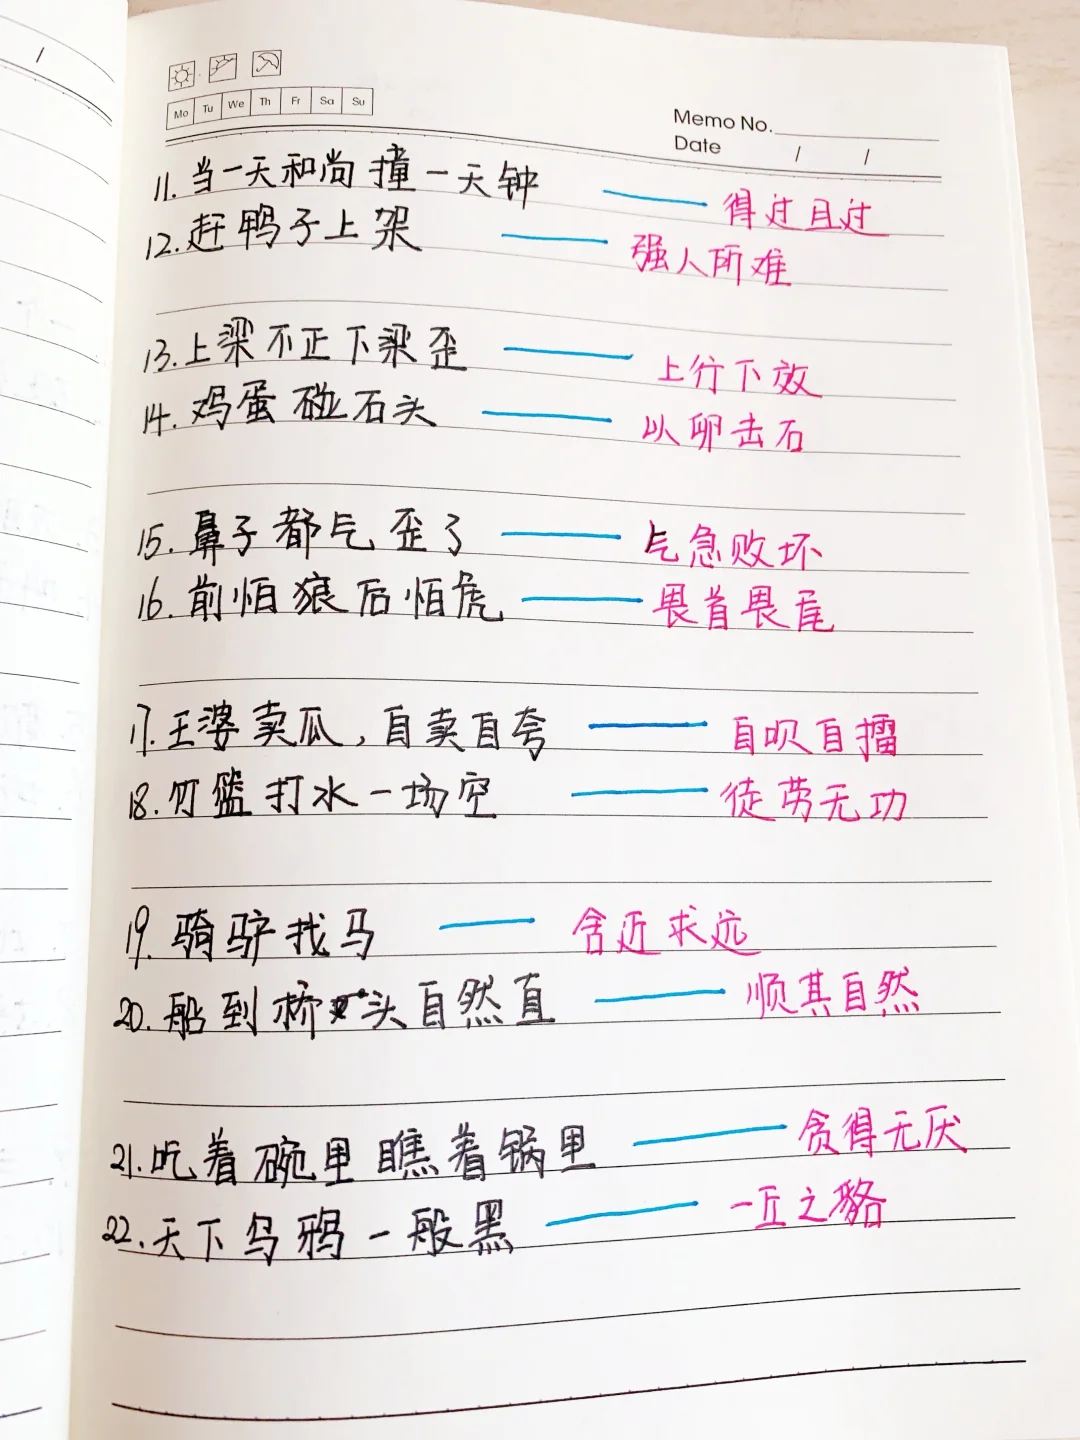 /
Mo Tu We Th Fr Sa Su
Memo No.
Date / /
11. 当一天和尚撞一天钟 —— 得过且过
12. 赶鸭子上架 —— 强人所难
13. 上梁不正下梁歪 —— 上行下效
14. 鸡蛋碰石头 —— 以卵击石
15. 鼻子都气歪了 —— 气急败坏
16. 前怕狼后怕虎 —— 畏首畏尾
17. 王婆卖瓜，自卖自夸 —— 自吹自擂
18. 竹篮打水一场空 —— 徒劳无功
19. 骑驴找马 —— 舍近求远
20. 船到桥头自然直 —— 顺其自然
21. 吃着碗里瞧着锅里 —— 贪得无厌
22. 天下乌鸦一般黑 —— 一丘之貉